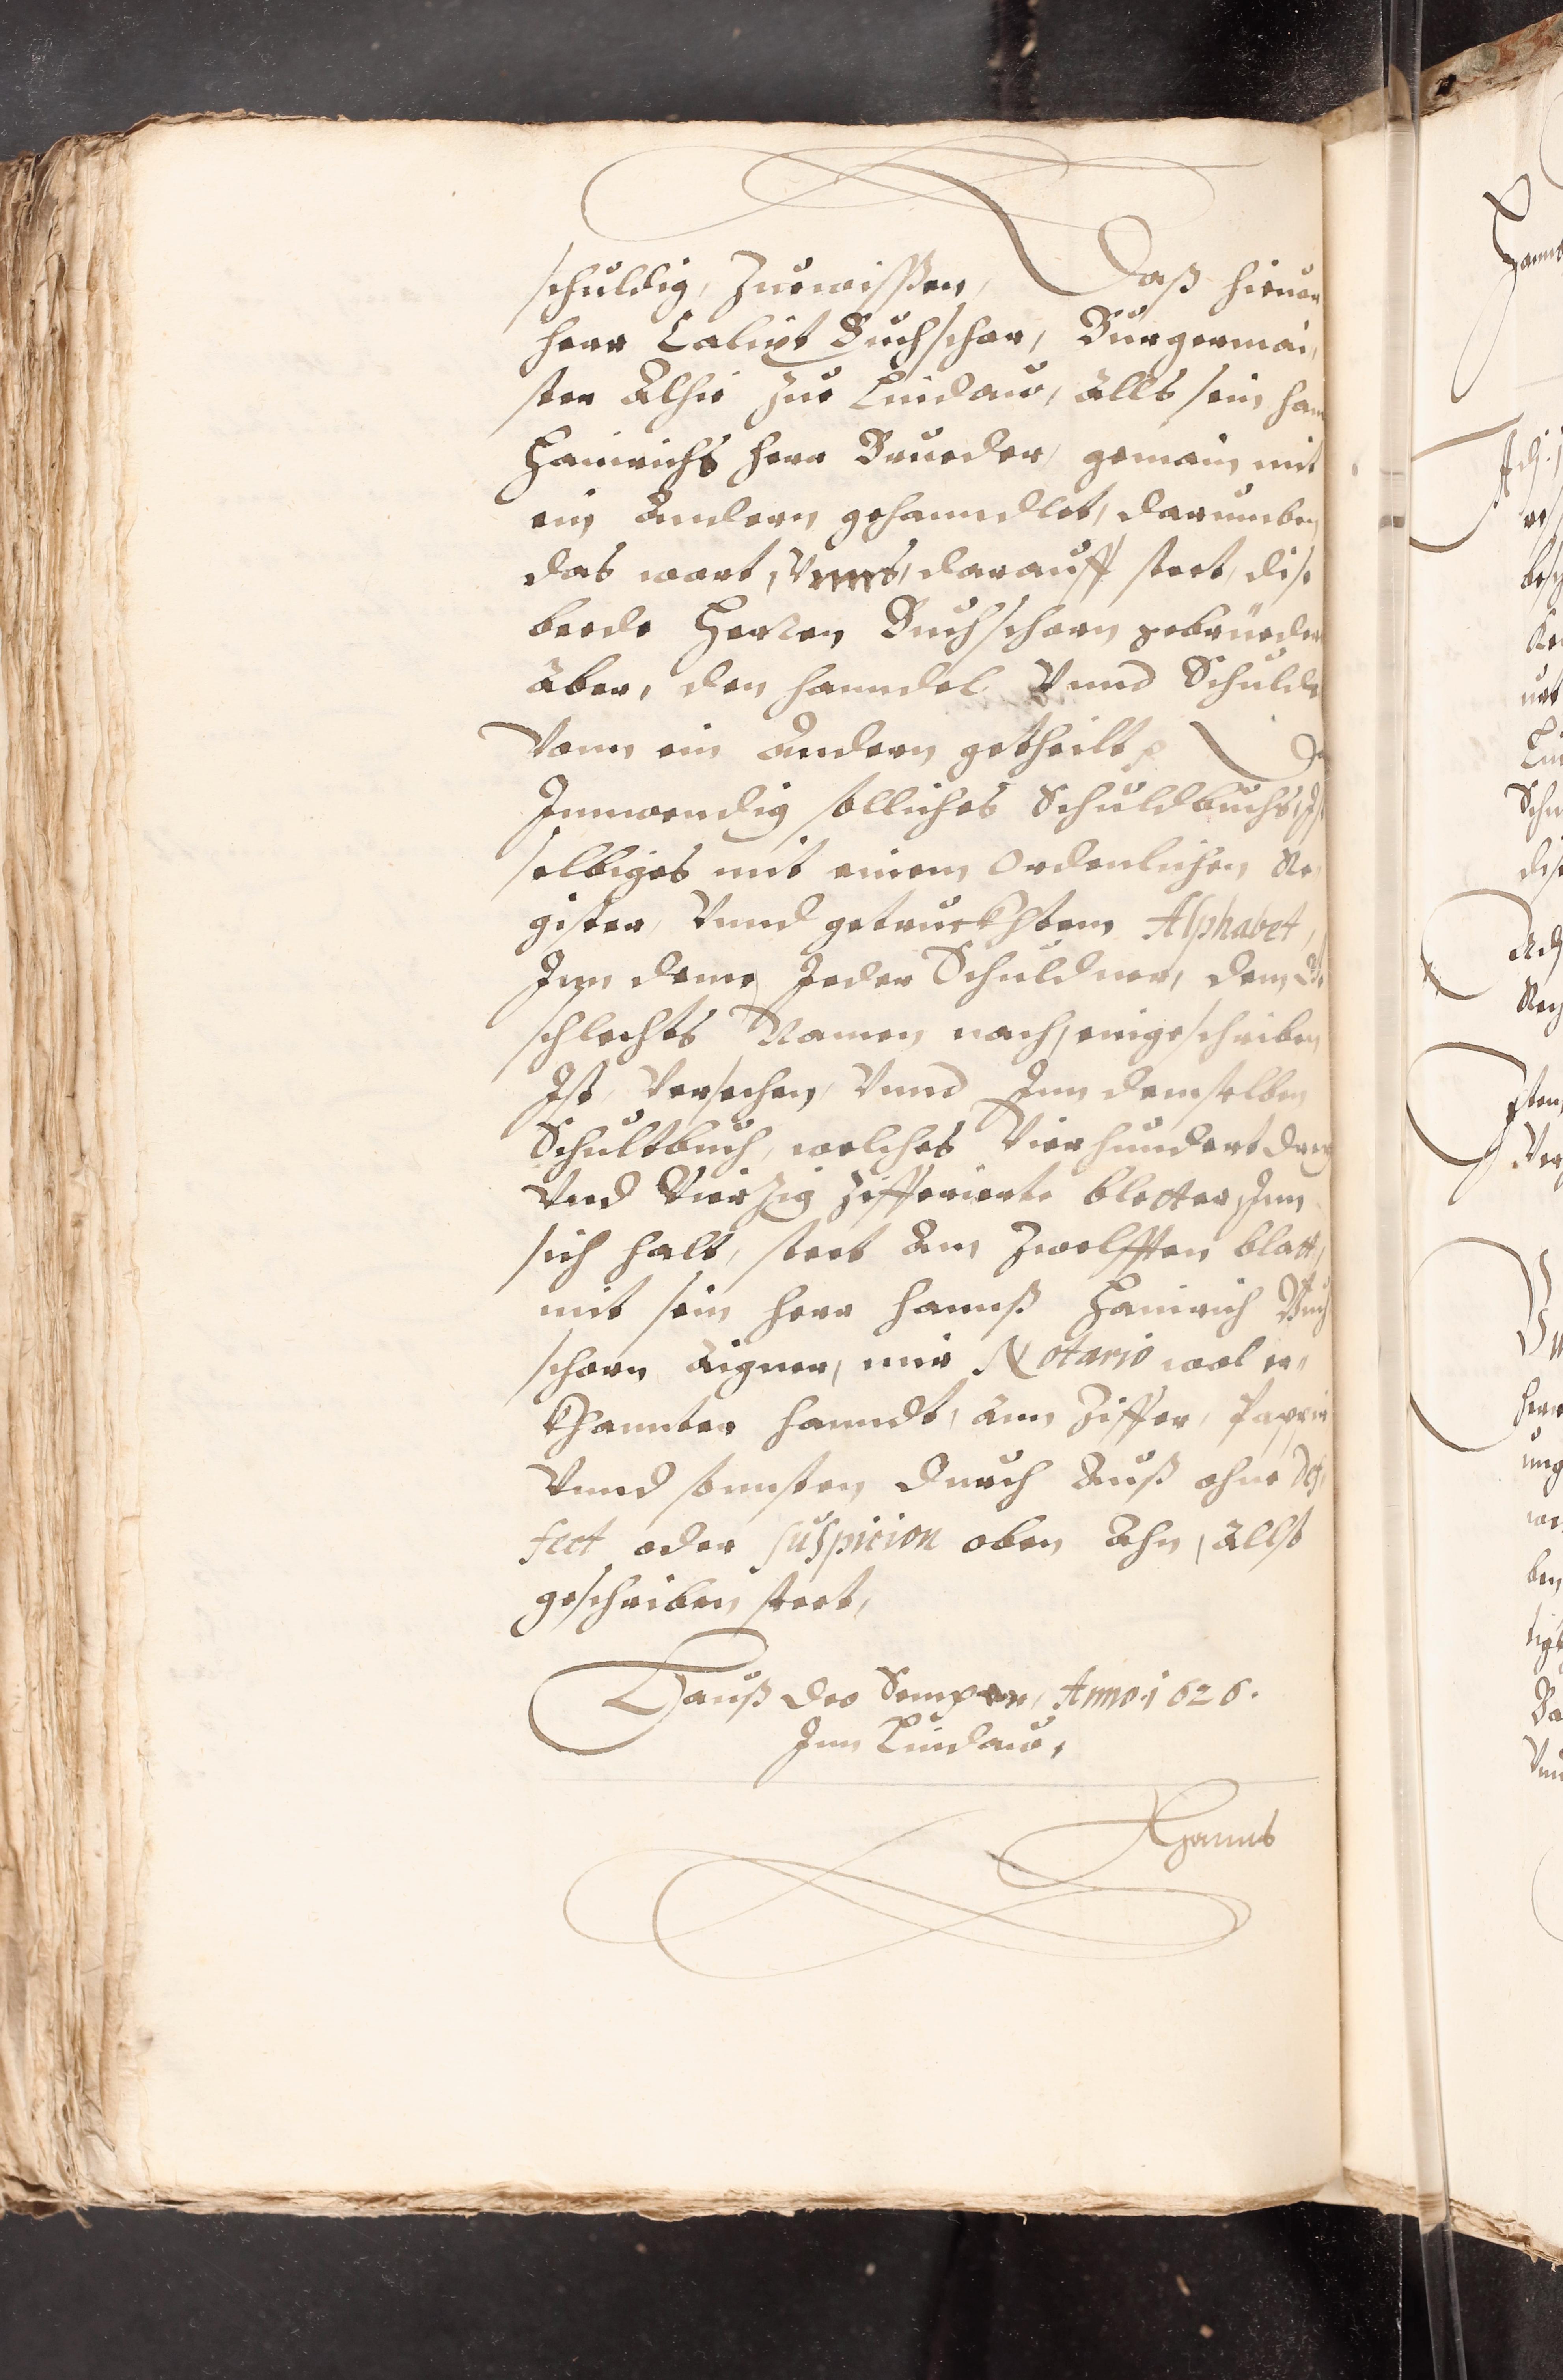 schuldig, Zuewissen, Daß hieuor
herr Calixt Buchschor, Burgermai,
ster Alhie zue Lindaw, allß sein han
Hainrichs herr Brueder, gemain mit
ein Andern gehanndlet, darumben
das wort, vnns, darauff steet, dise
beede Herren Buchschorn gebrüeder
Aber, den hanndel Vnnd Schulde
Vonn ein Andern getheilt
Innwendig solliches Schuldbuchs, Ist
selbiges mit einem Ordenlichen Re
gister, Vnnd getruckhtem Alphabet,
Inn deme, Jeder Schuldner, dem Ge
schlechts Namen nach, eingeschriben
Ist, Versechen, Vnnd Inn demselben
Schultbuch, welches Vierhundert drey
Vnd Vierzig Zifferierte bletter, Inn
sich halt, steet Am Zwelfften blatt,
mit sein herr Hannß Hainrich Buch
schorn Aigner, mir Notario wol er
khannter hanndt, Ann Ziffer, Pappir
Vnnd sonnsten durch Auß ohne Def,
fect oder suspicion oben Ahn, Allso
geschriben steet,
Lauß deo Semper, Anno 1626.
Inn Lindaw,
Hanns